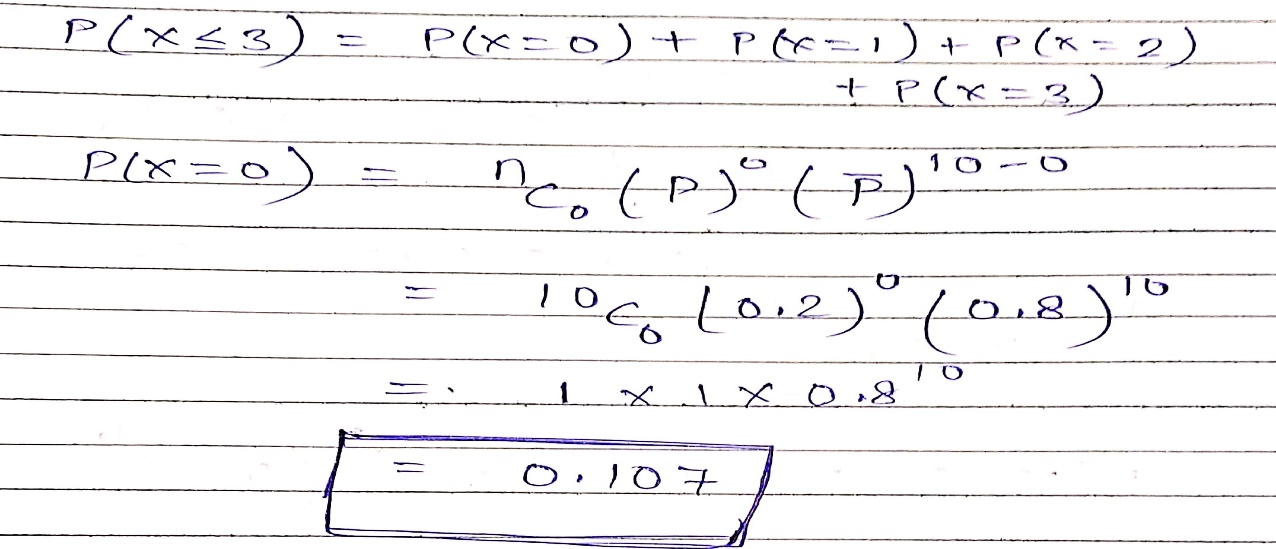 P(x≤3) = P(x=0) + P(x=1) + P(x=2)
+ P(x=3)
P(x=0) = ⁿC₀ (P)⁰ (P̅)¹⁰⁻⁰
= ¹⁰C₀ (0.2)⁰ (0.8)¹⁰
= 1 × 1 × 0.8¹⁰
= 0.107